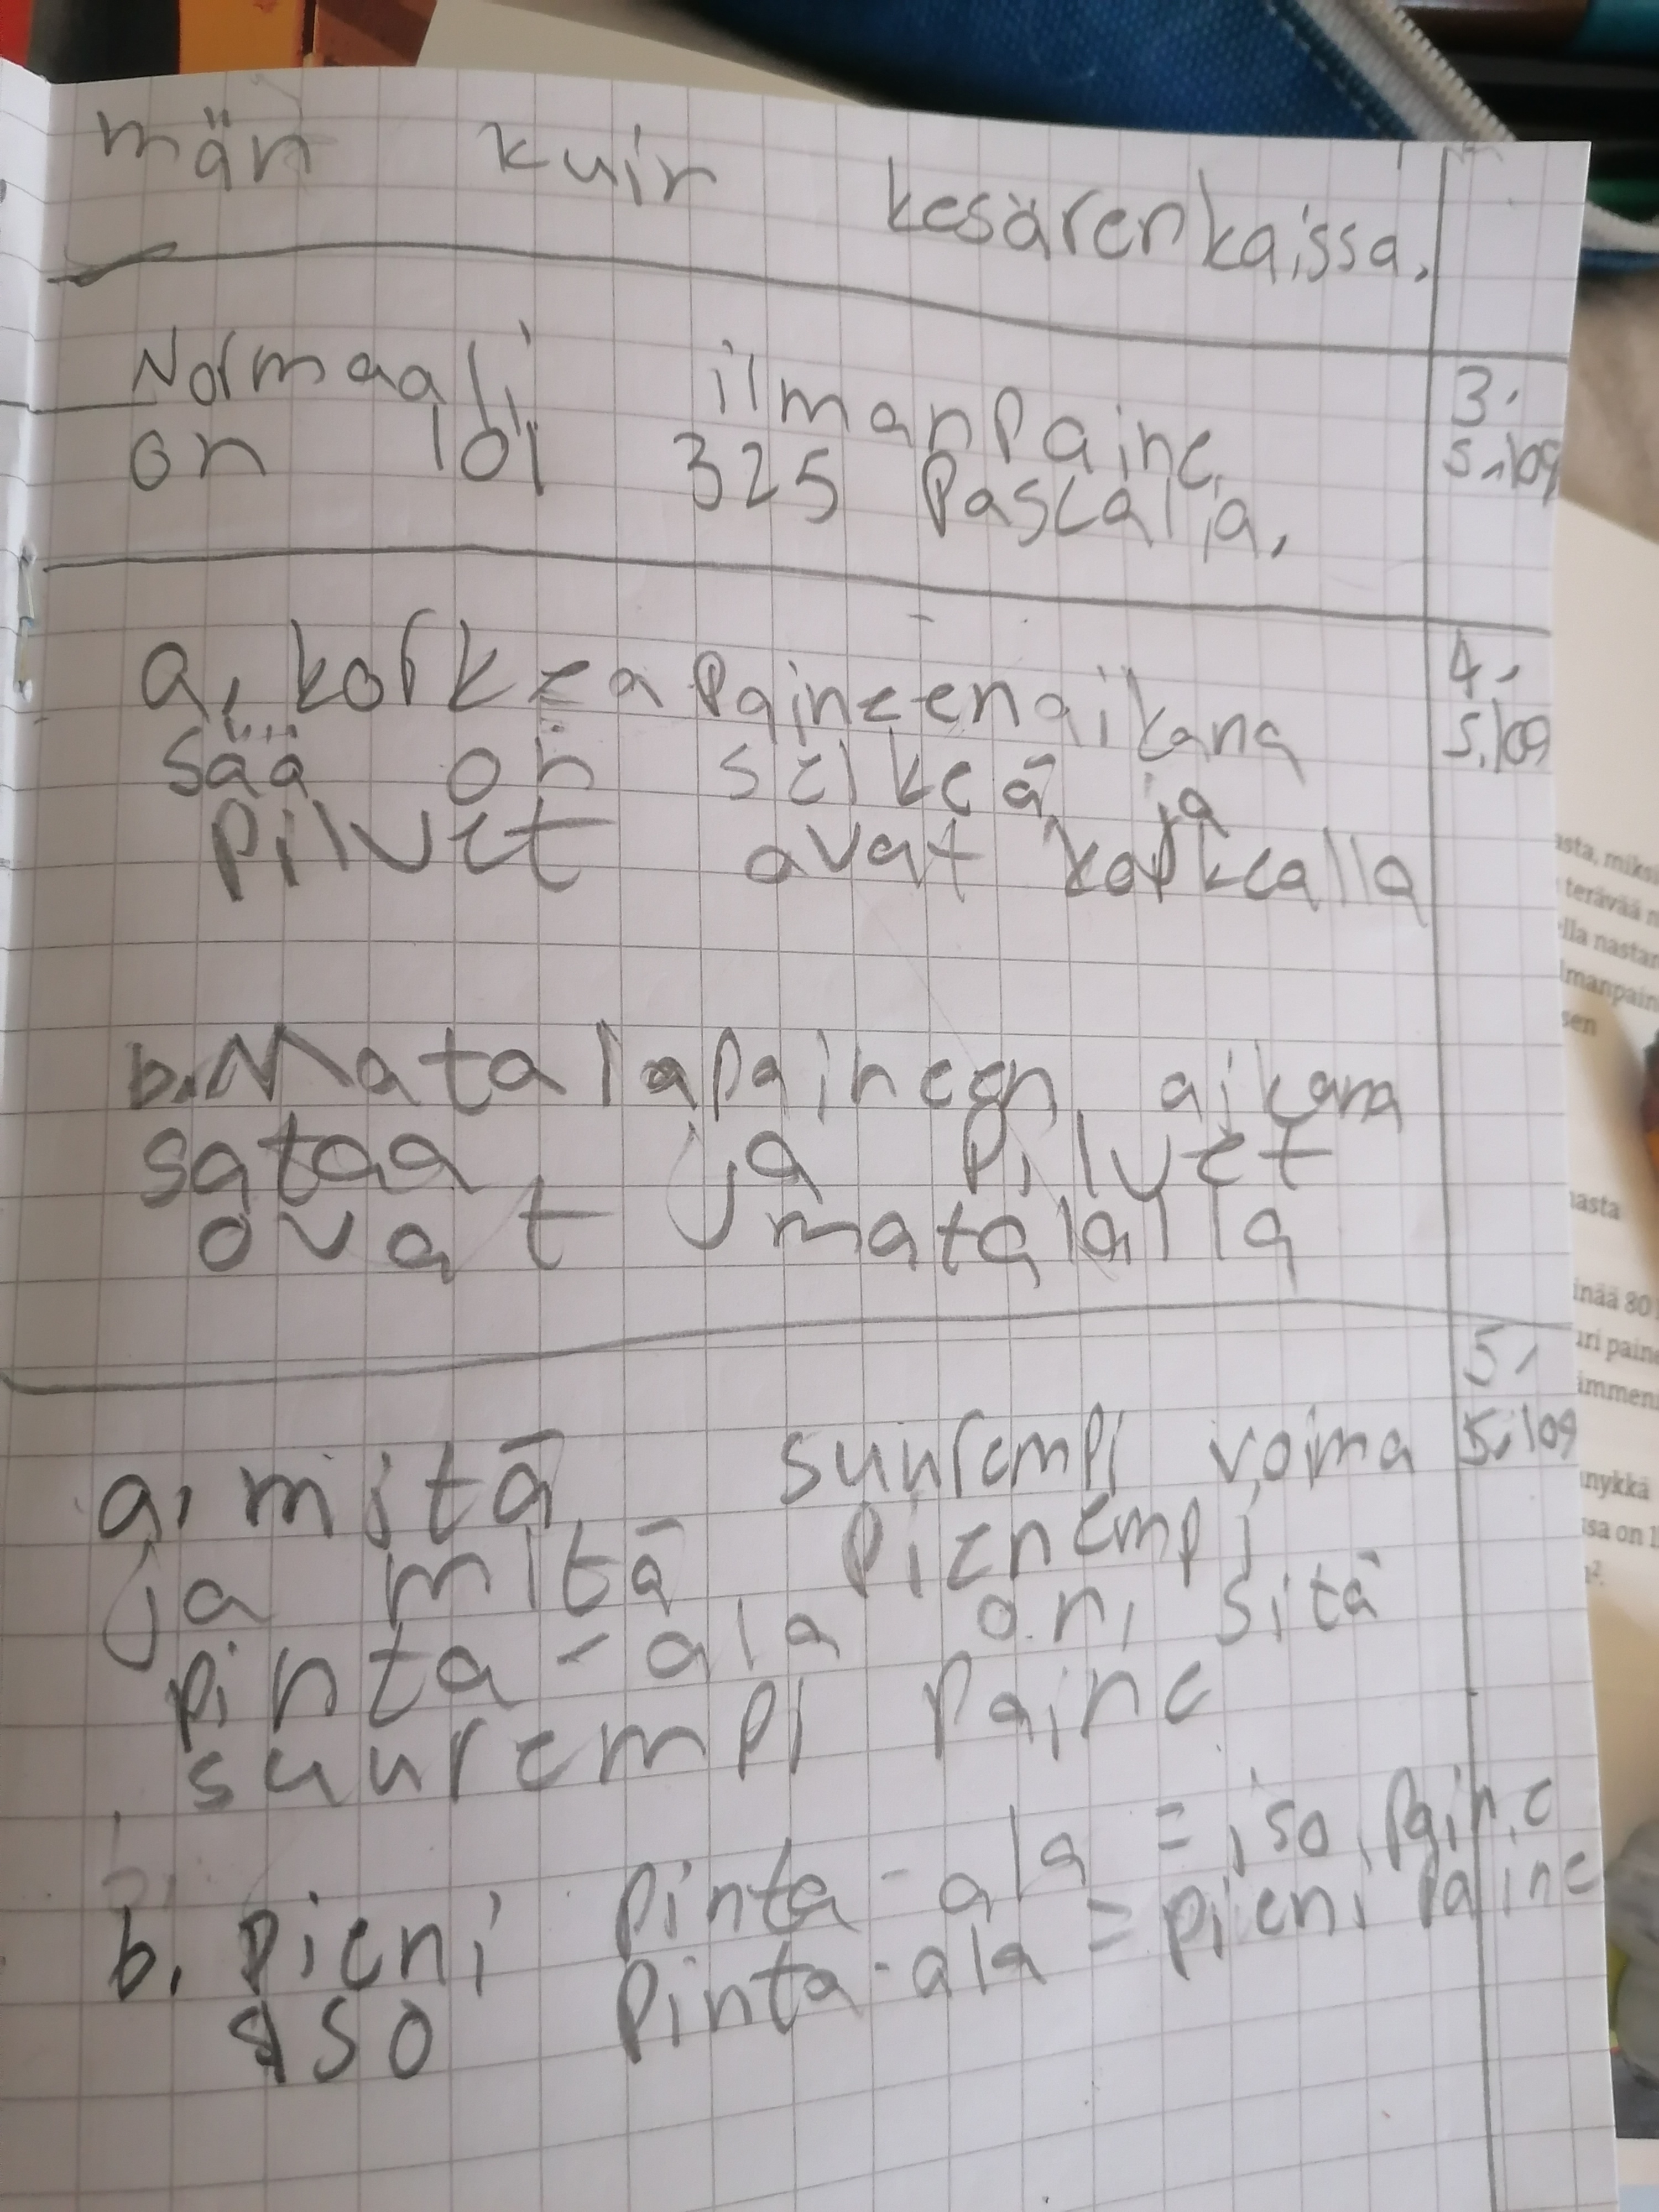 män kuin kesärenkaissa.
Normaali ilmanpaine
on 101 325 Pascalia.
3.
s.109
a, korkeapaineenaikana
sää on selkeä ja
pilvet ovat korkealla
4.
s.109
b. Matalapaineen aikana
sataa ja pilvet
ovat matalalla
5.
s.109
a, mitä suurempi voima
ja mitä pienempi
pinta-ala on, sitä
suurempi paine
b. pieni pinta-ala = iso paine
iso pinta-ala = pieni paine
asta, miksi
terävää
lla nastan
lmanpain
sen
nasta
inää 80
uri paine
immen
nykkä
ssa on